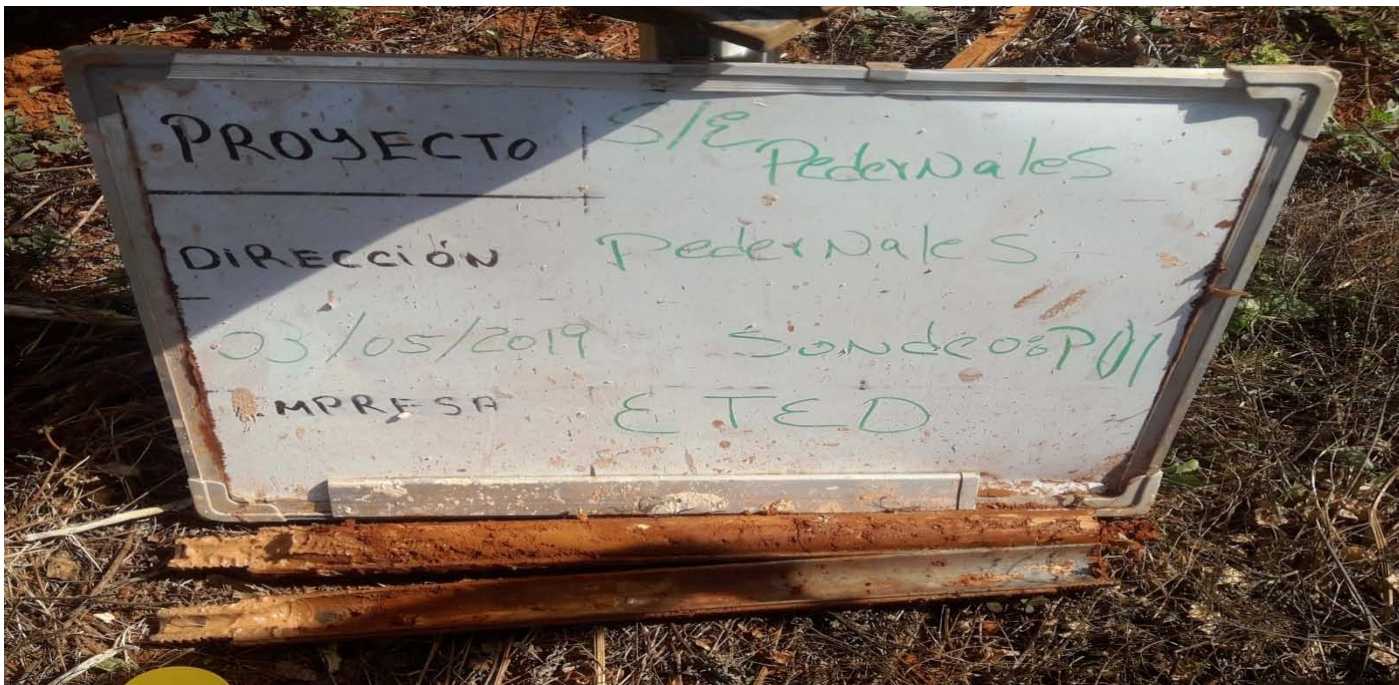 PROYECTO S/E Pedernales
DIRECCIÓN Pedernales
03/05/2019 Sondeo: P01
EMPRESA ETED